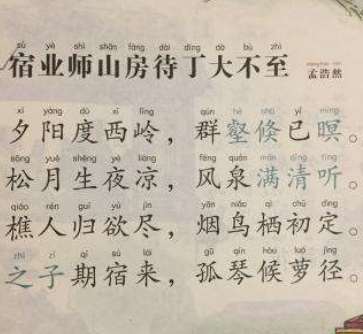 sù yè shī shān fáng dài dīng dà bù zhì
宿业师山房待丁大不至 孟浩然
xī yáng dù xī lǐng qún hè shū yǐ míng
夕阳度西岭，群壑倏已暝。
sōng yuè shēng yè liáng fēng quán mǎn qīng tīng
松月生夜凉，风泉满清听。
qiáo rén guī yù jìn yān niǎo qī chū dìng
樵人归欲尽，烟鸟栖初定。
zhī zǐ qī sù lái gū qín hòu luó jìng
之子期宿来，孤琴候萝径。